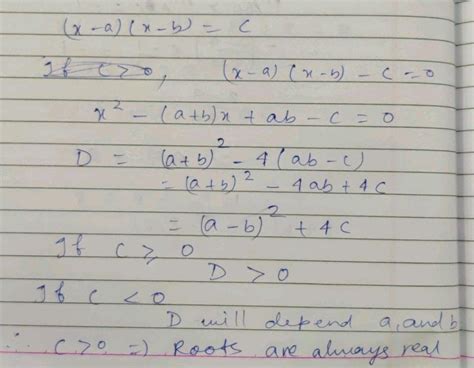 (x-a)(x-b) = C
If C>0, (x-a)(x-b) - C = 0
x² - (a+b)x + ab - C = 0
D = (a+b)² - 4(ab-c)
= (a+b)² - 4ab + 4c
= (a-b)² + 4c
If C ≥ 0
D > 0
If C < 0
D will depend a, and b
∴ C>0 ⇒ Roots are always real